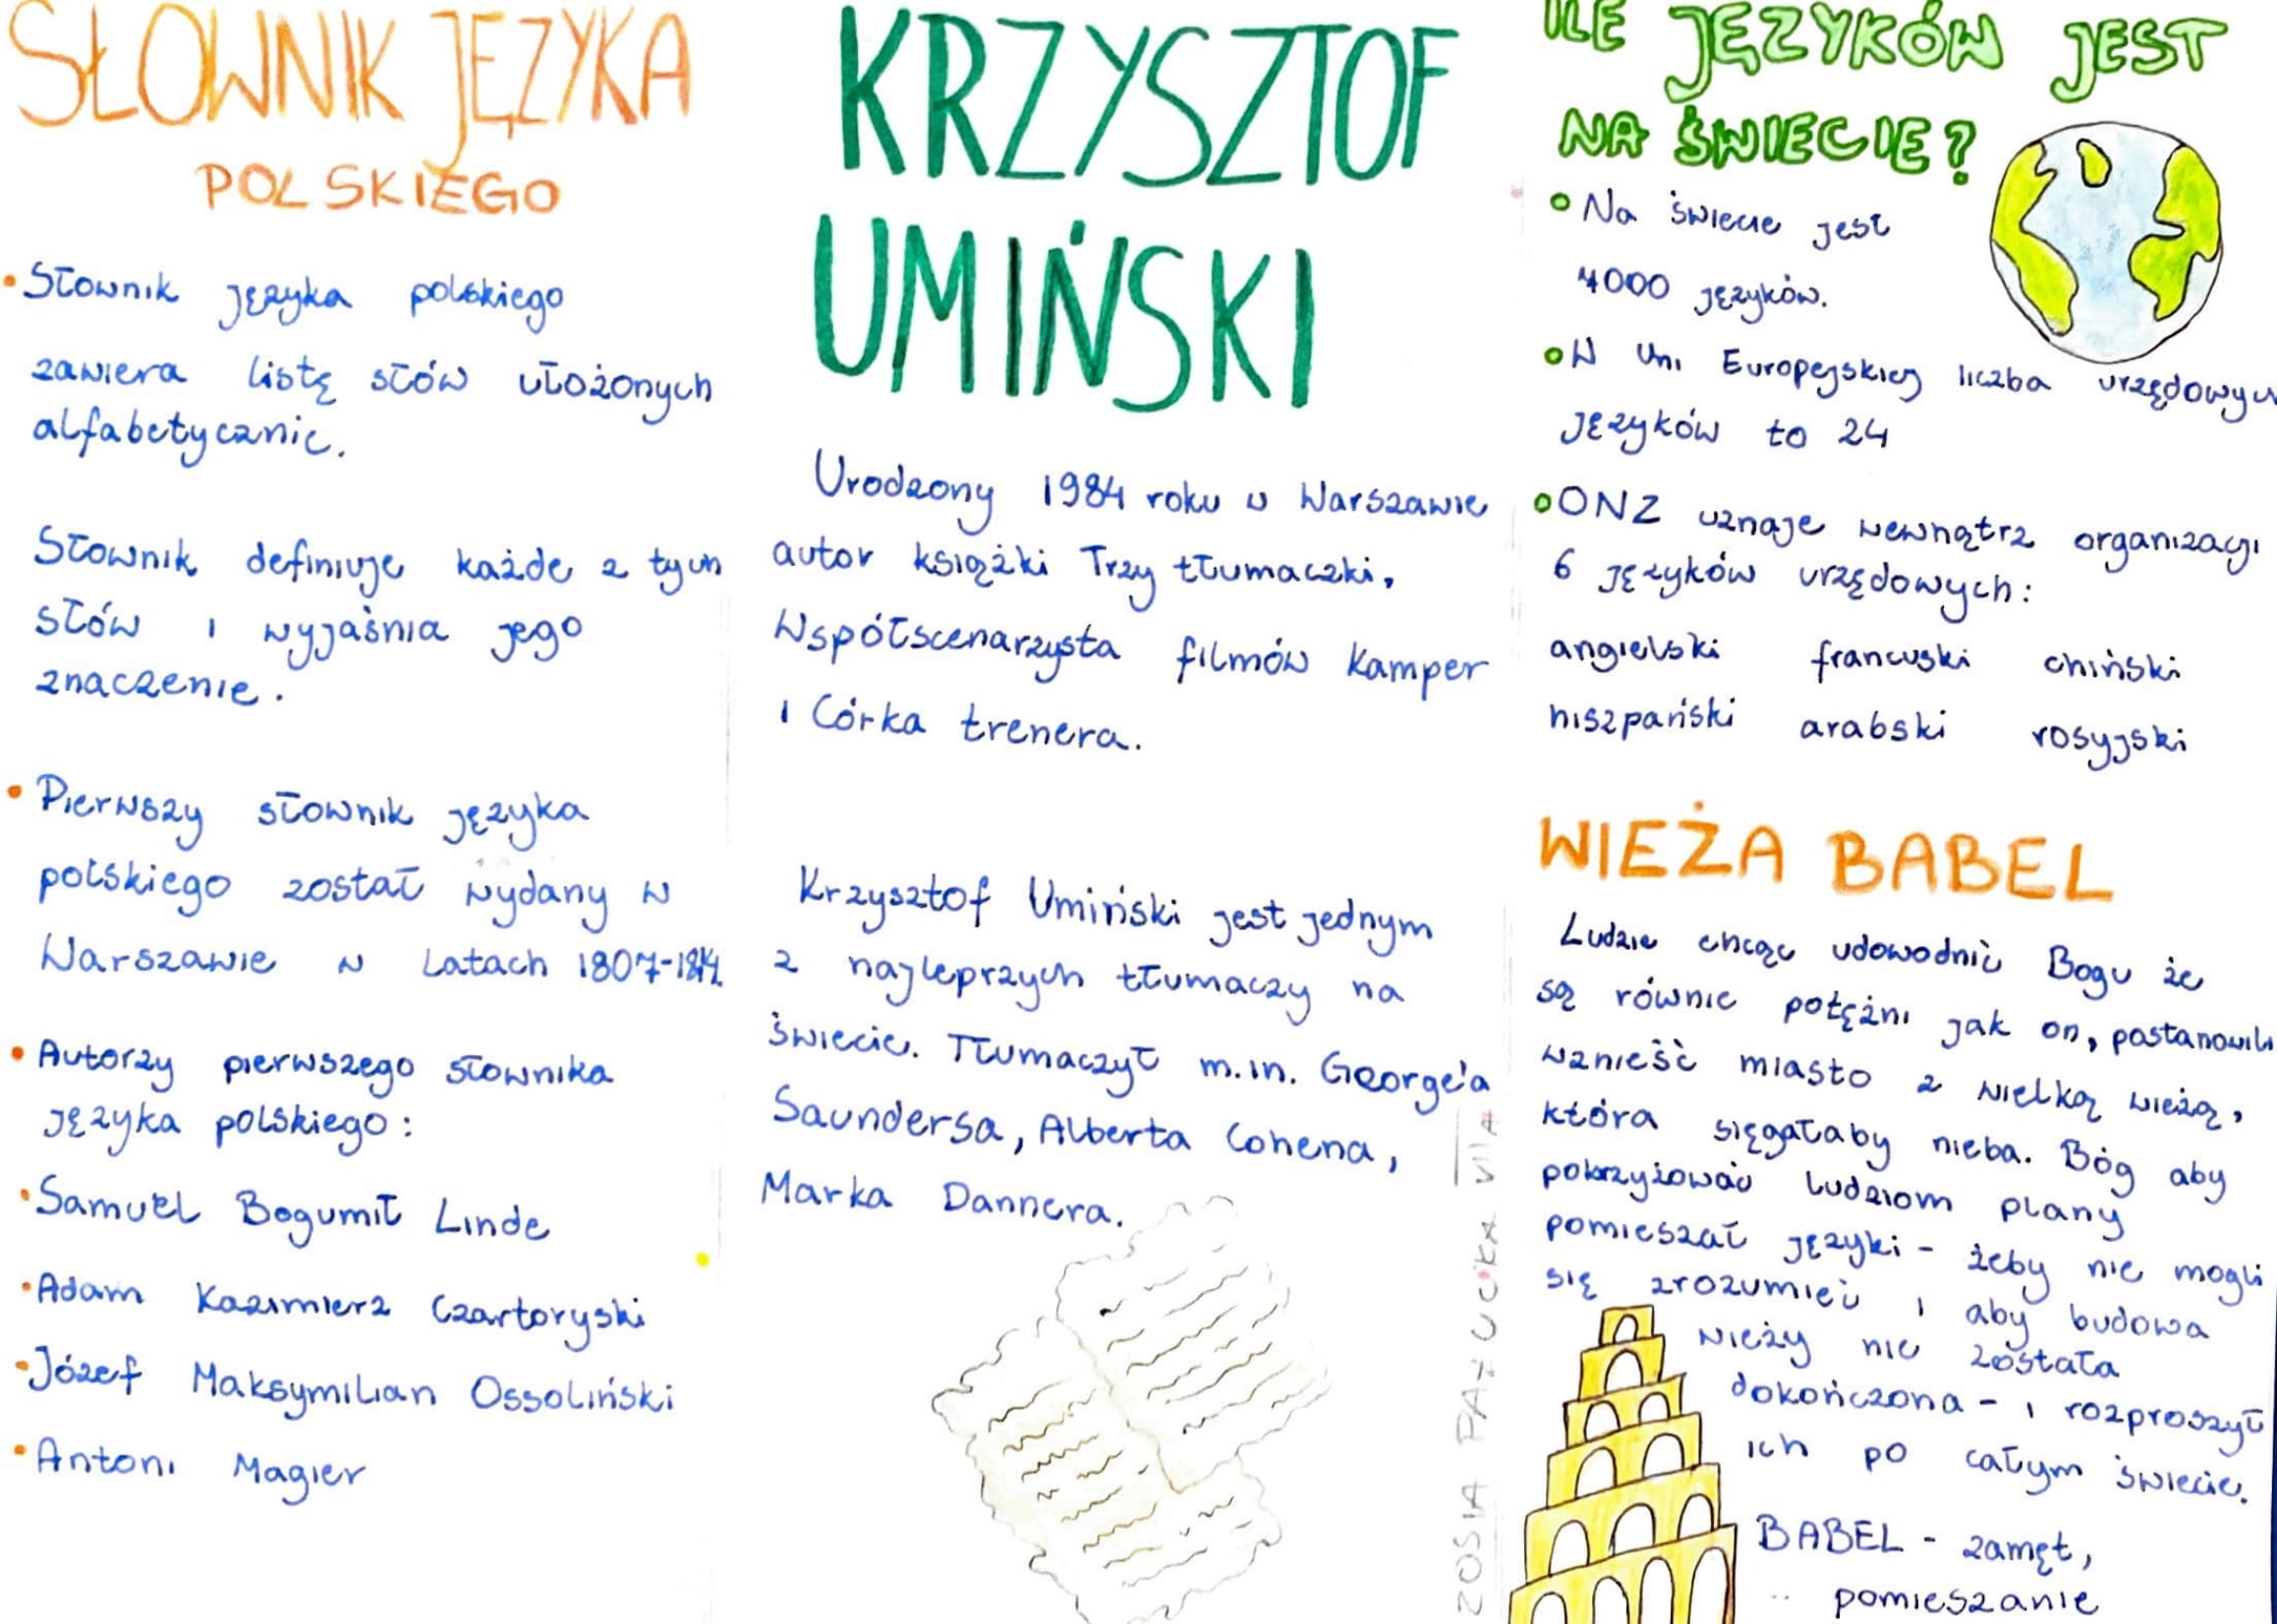 SŁOWNIK JĘZYKA
POLSKIEGO
• Słownik języka polskiego
zawiera listę słów ułożonych
alfabetycznie.
Słownik definiuje każde z tych
słów i wyjaśnia jego
znaczenie.
• Pierwszy słownik języka
polskiego został wydany w
Warszawie w latach 1807-1814
• Autorzy pierwszego słownika
języka polskiego:
• Samuel Bogumił Linde
• Adam Kazimierz Czartoryski
• Józef Maksymilian Ossoliński
• Antoni Magier
KRZYSZTOF
UMIŃSKI
Urodzony 1984 roku w Warszawie
autor książki Trzy tłumaczki.
Współscenarzysta filmów Kamper
i Córka trenera.
Krzysztof Umiński jest jednym
z najleprzych tłumaczy na
świecie. Tłumaczył m.in. George'a
Saundersa, Alberta Cohena,
Marka Dannera.
ZOSIA VIIA
ILE JĘZYKÓW JEST
NA ŚWIECIE?
• Na świecie jest
7000 języków.
• W Uni Europejskiej liczba urzędowych
języków to 24
• ONZ uznaje wewnątrz organizacji
6 języków urzędowych:
angielski francuski chiński
hiszpański arabski rosyjski
WIEŻA BABEL
Ludzie chcąc udowodnić Bogu że
są równie potężni jak on, postanowili
wznieść miasto z wielką wieżą,
która sięgałaby nieba. Bóg aby
pokrzyżować ludziom plany
pomieszał języki - żeby nie mogli
się zrozumieć i aby budowa
wieży nie została
dokończona - i rozproszył
ich po całym świecie.
BABEL - zamęt,
pomieszanie